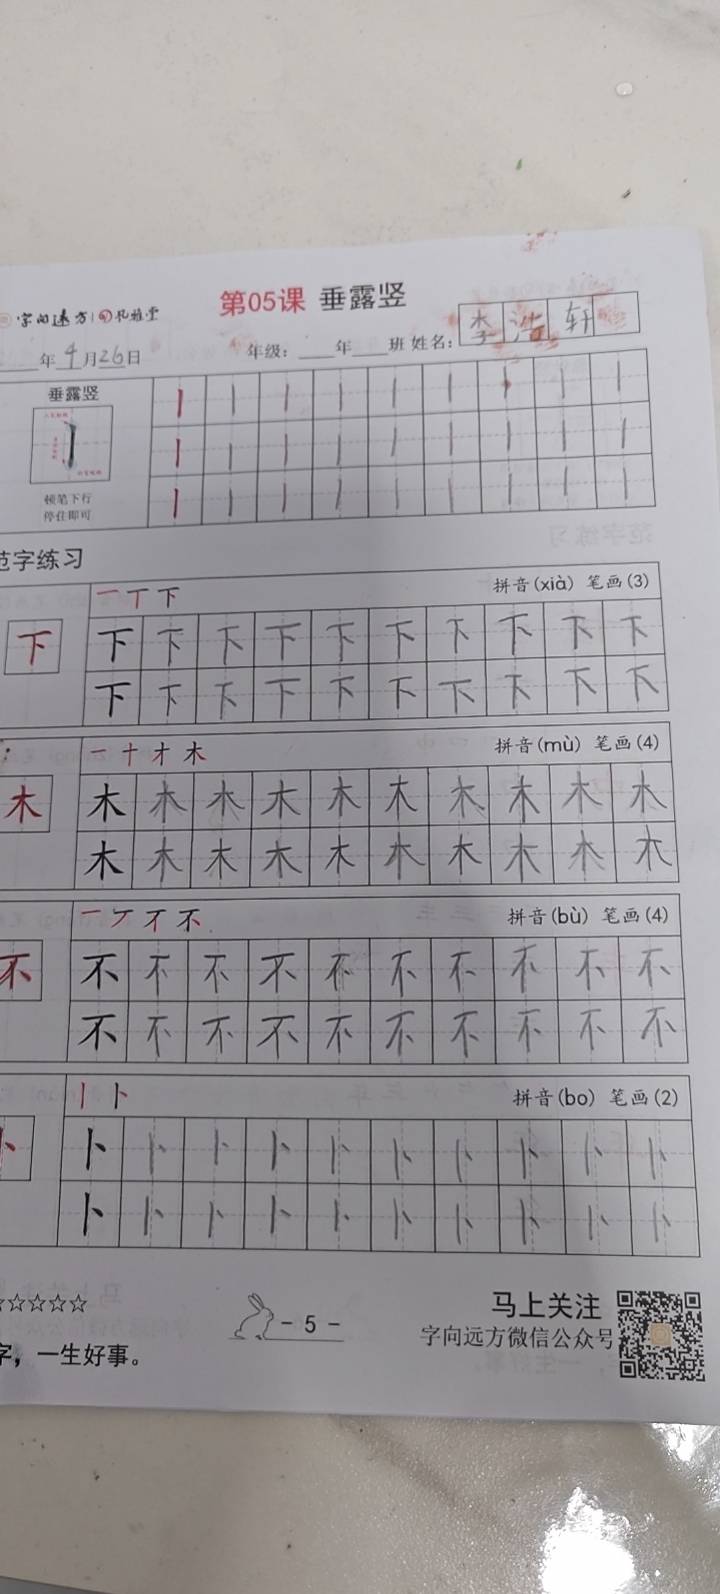 第05课 垂露竖
字向远方
年4月26日 年级： 年 班 姓名：李浩轩
垂露竖
顿笔下行
停住即可
范字练习
一丅下 拼音(xià) 笔画(3)
下 下下下下下下下下下下
下下下下下下下下下下
一十才木 拼音(mù) 笔画(4)
木 木木木木木木木木木木
木木木木木木木木木木
一丆不不 拼音(bù) 笔画(4)
不 不不不不不不不不不不
不不不不不不不不不不
丨卜 拼音(bo) 笔画(2)
卜 卜卜卜卜卜卜卜卜卜卜
卜卜卜卜卜卜卜卜卜卜
☆☆☆☆☆
- 5 -
马上关注
字向远方微信公众号
字，一生好事。